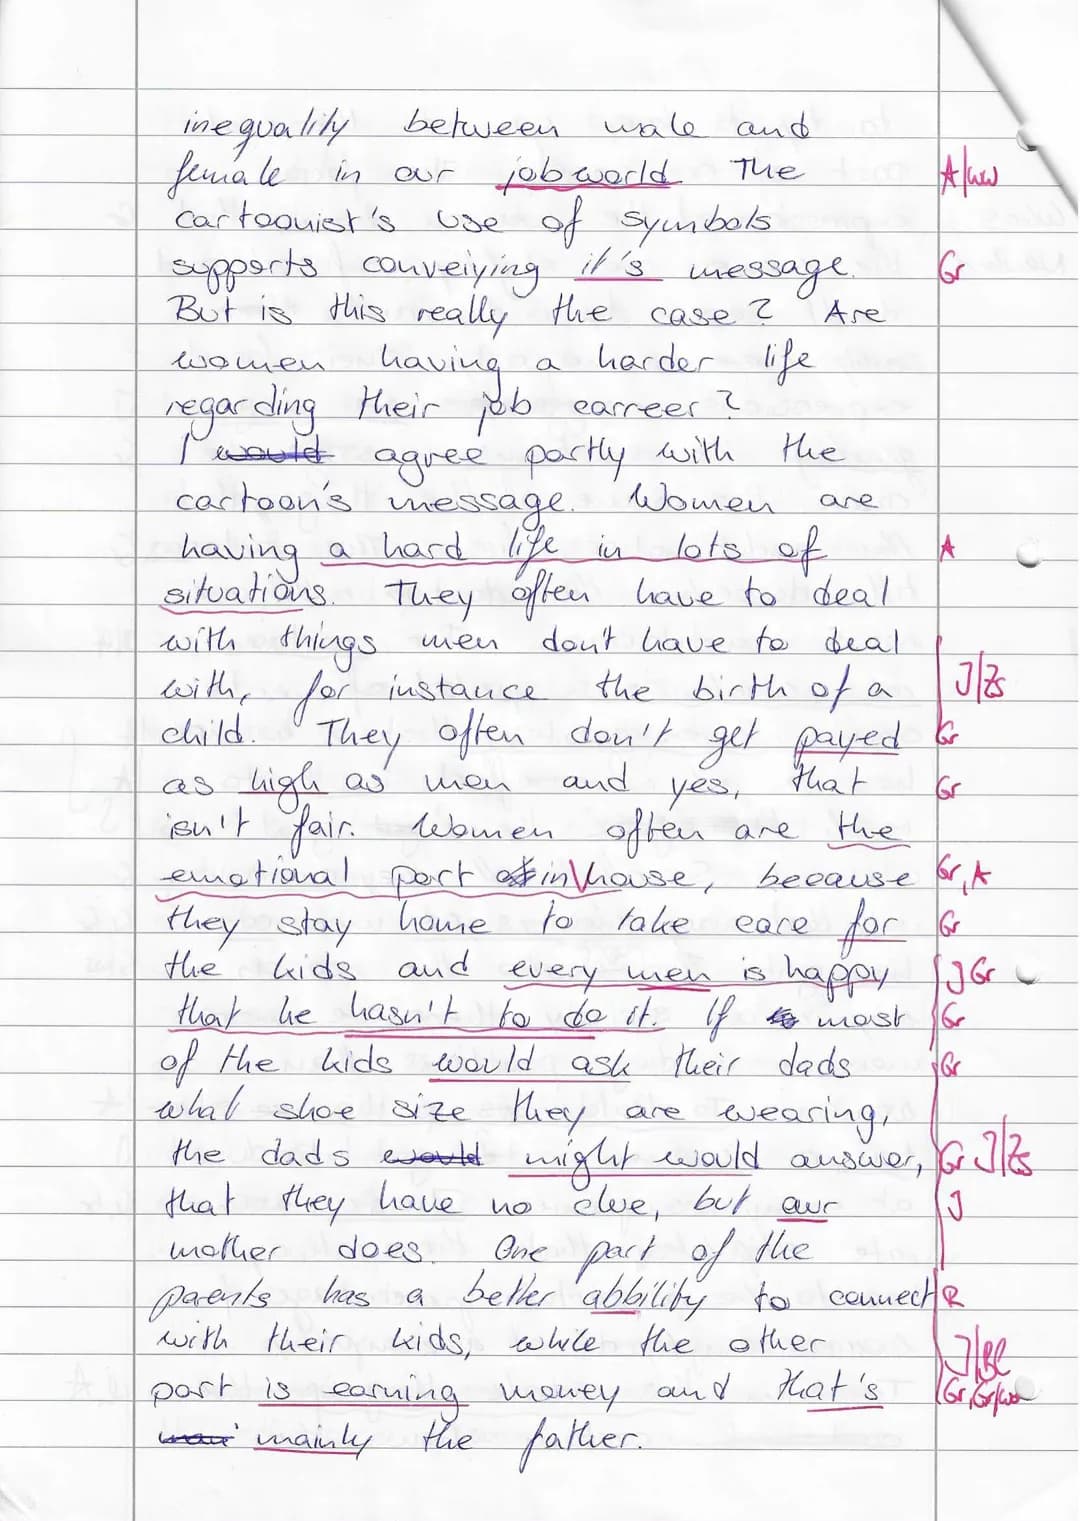 inequality between male and
female in our job world The A/ww
cartoonist's use of symbols
supports conveiying it's message. Gr
But is this really the case? Are
women having a harder life
regarding their job carreer?
I would agree partly with the
cartoon's message. Women are
having a hard life in lots of A
situations. They often have to deal
with things men don't have to deal
with, for instance the birth of a J/Zs
child. They often don't get payed Gr
as high as men and yes, that Gr
isn't fair. Women often are the
emotional part in house, because Gr, A
they stay home to take care for Gr
the kids and every men is happy J Gr
that he hasn't to do it. If most Gr
of the kids would ask their dads Gr
what shoe size they are wearing,
the dads would might would answer, Gr J/Zs
that they have no clue, but our J
mother does. One part of the
parents has a better abbility to connect R
with their kids, while the other J/Bl
part is earning money and that's Gr, Gr/wo
mainly the father.